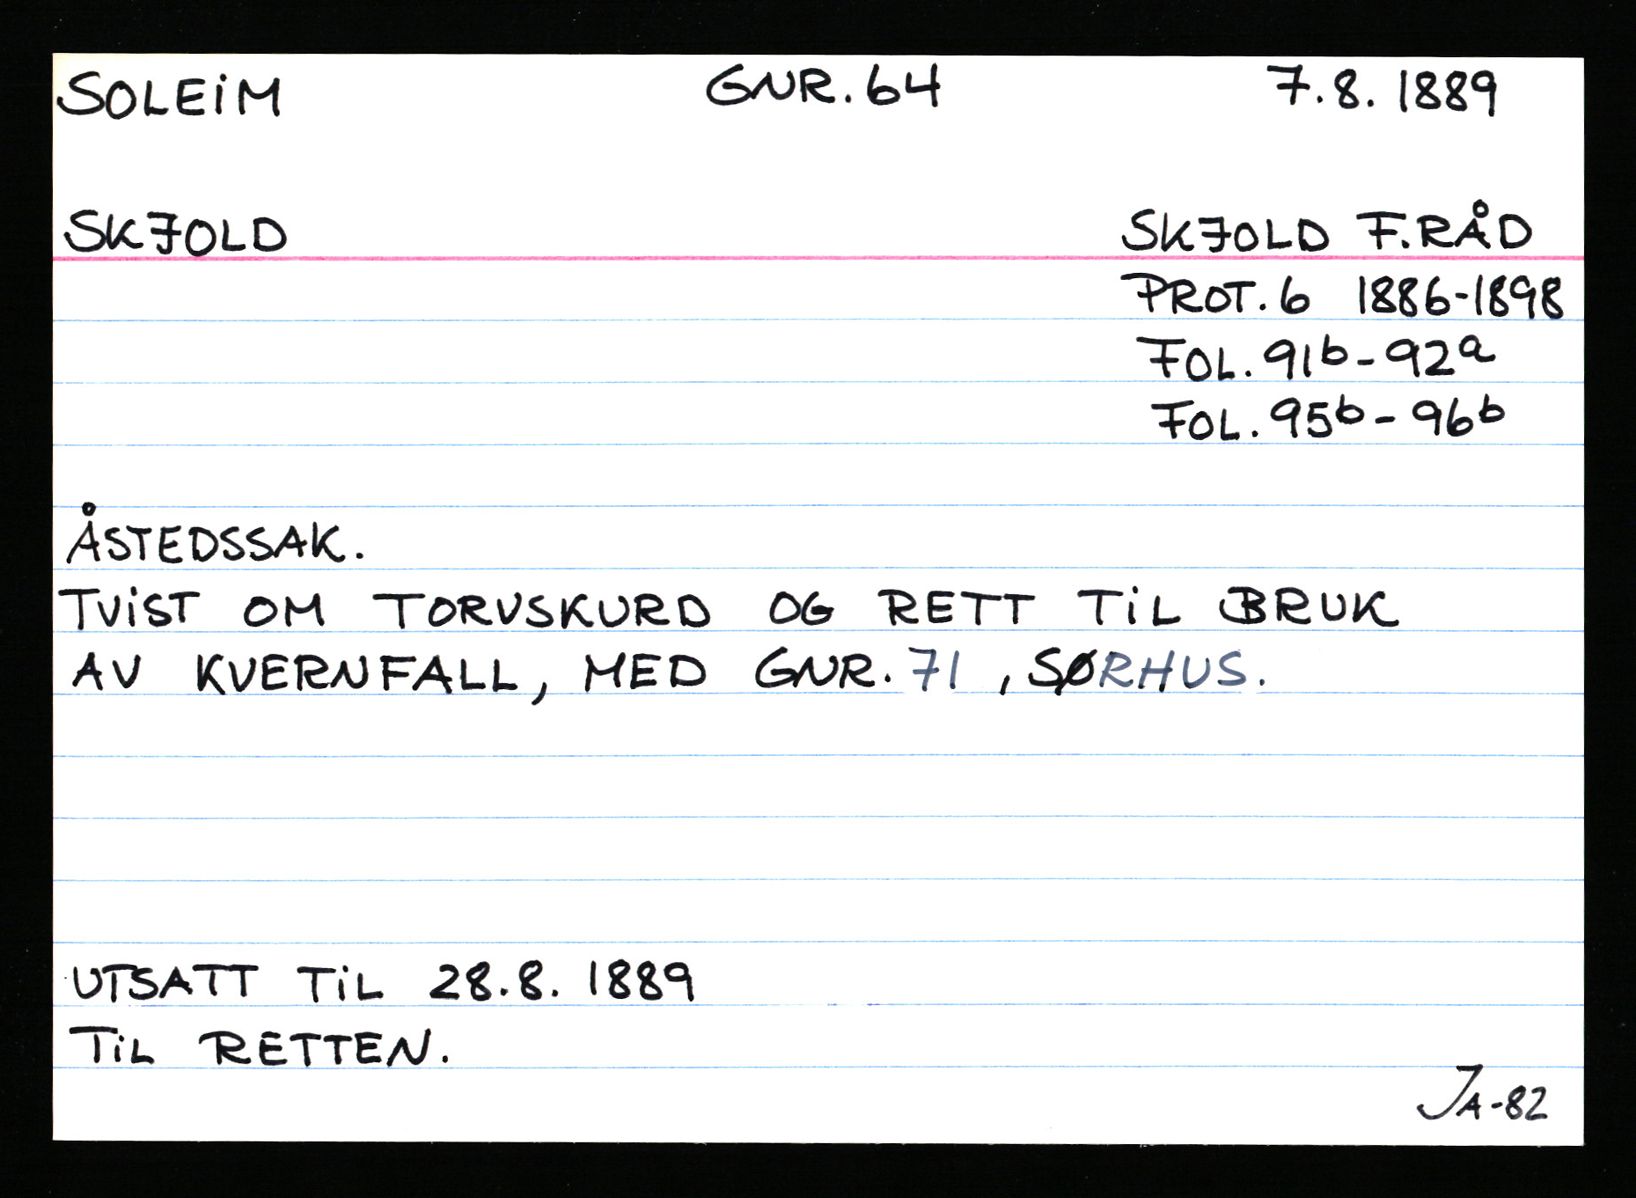 SOLEIM GNR. 64 7.8. 1889
SKJOLD SKJOLD F.RÅD
PROT. 6 1886-1898
FOL. 91b - 92a
FOL. 95b - 96b
ÅSTEDSSAK.
TVIST OM TORVSKURD OG RETT TIL BRUK
AV KVERNFALL, MED GNR. 71, SØRHUS.
UTSATT TIL 28.8. 1889
TIL RETTEN.
JA-82